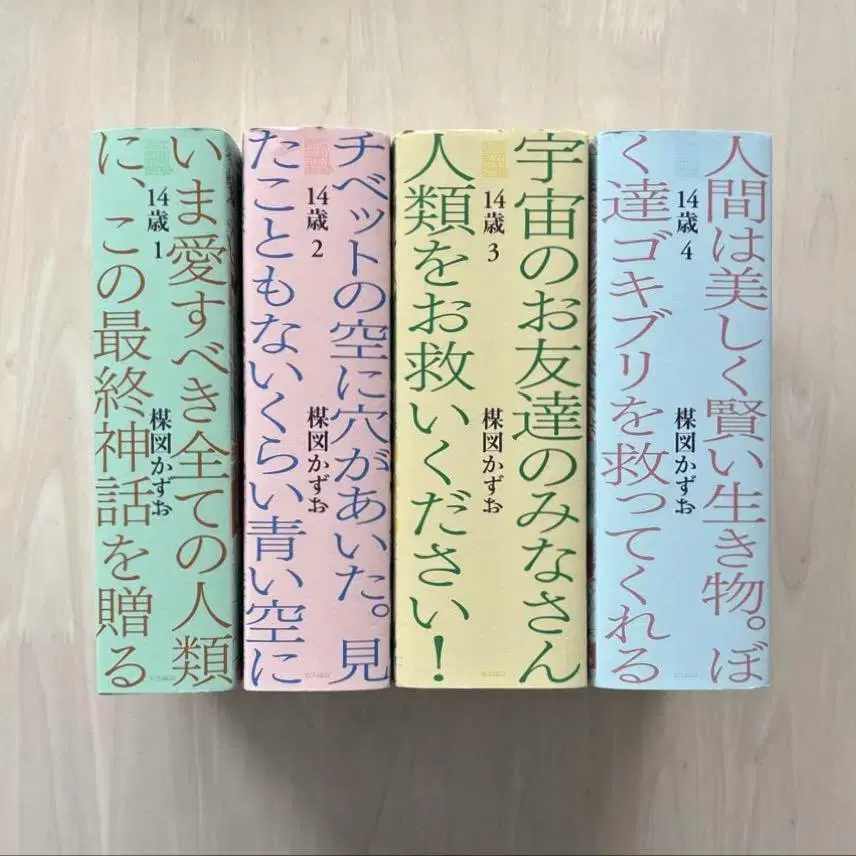 いま愛すべき全ての人類
に、この最終神話を贈る
14歳 1
楳図かずお
チベットの空に穴があいた。見
たこともないくらい青い空に
14歳 2
楳図かずお
宇宙のお友達のみなさん
人類をお救いください！
14歳 3
楳図かずお
人間は美しく賢い生き物。ぼ
く達ゴキブリを救ってくれる
14歳 4
楳図かずお